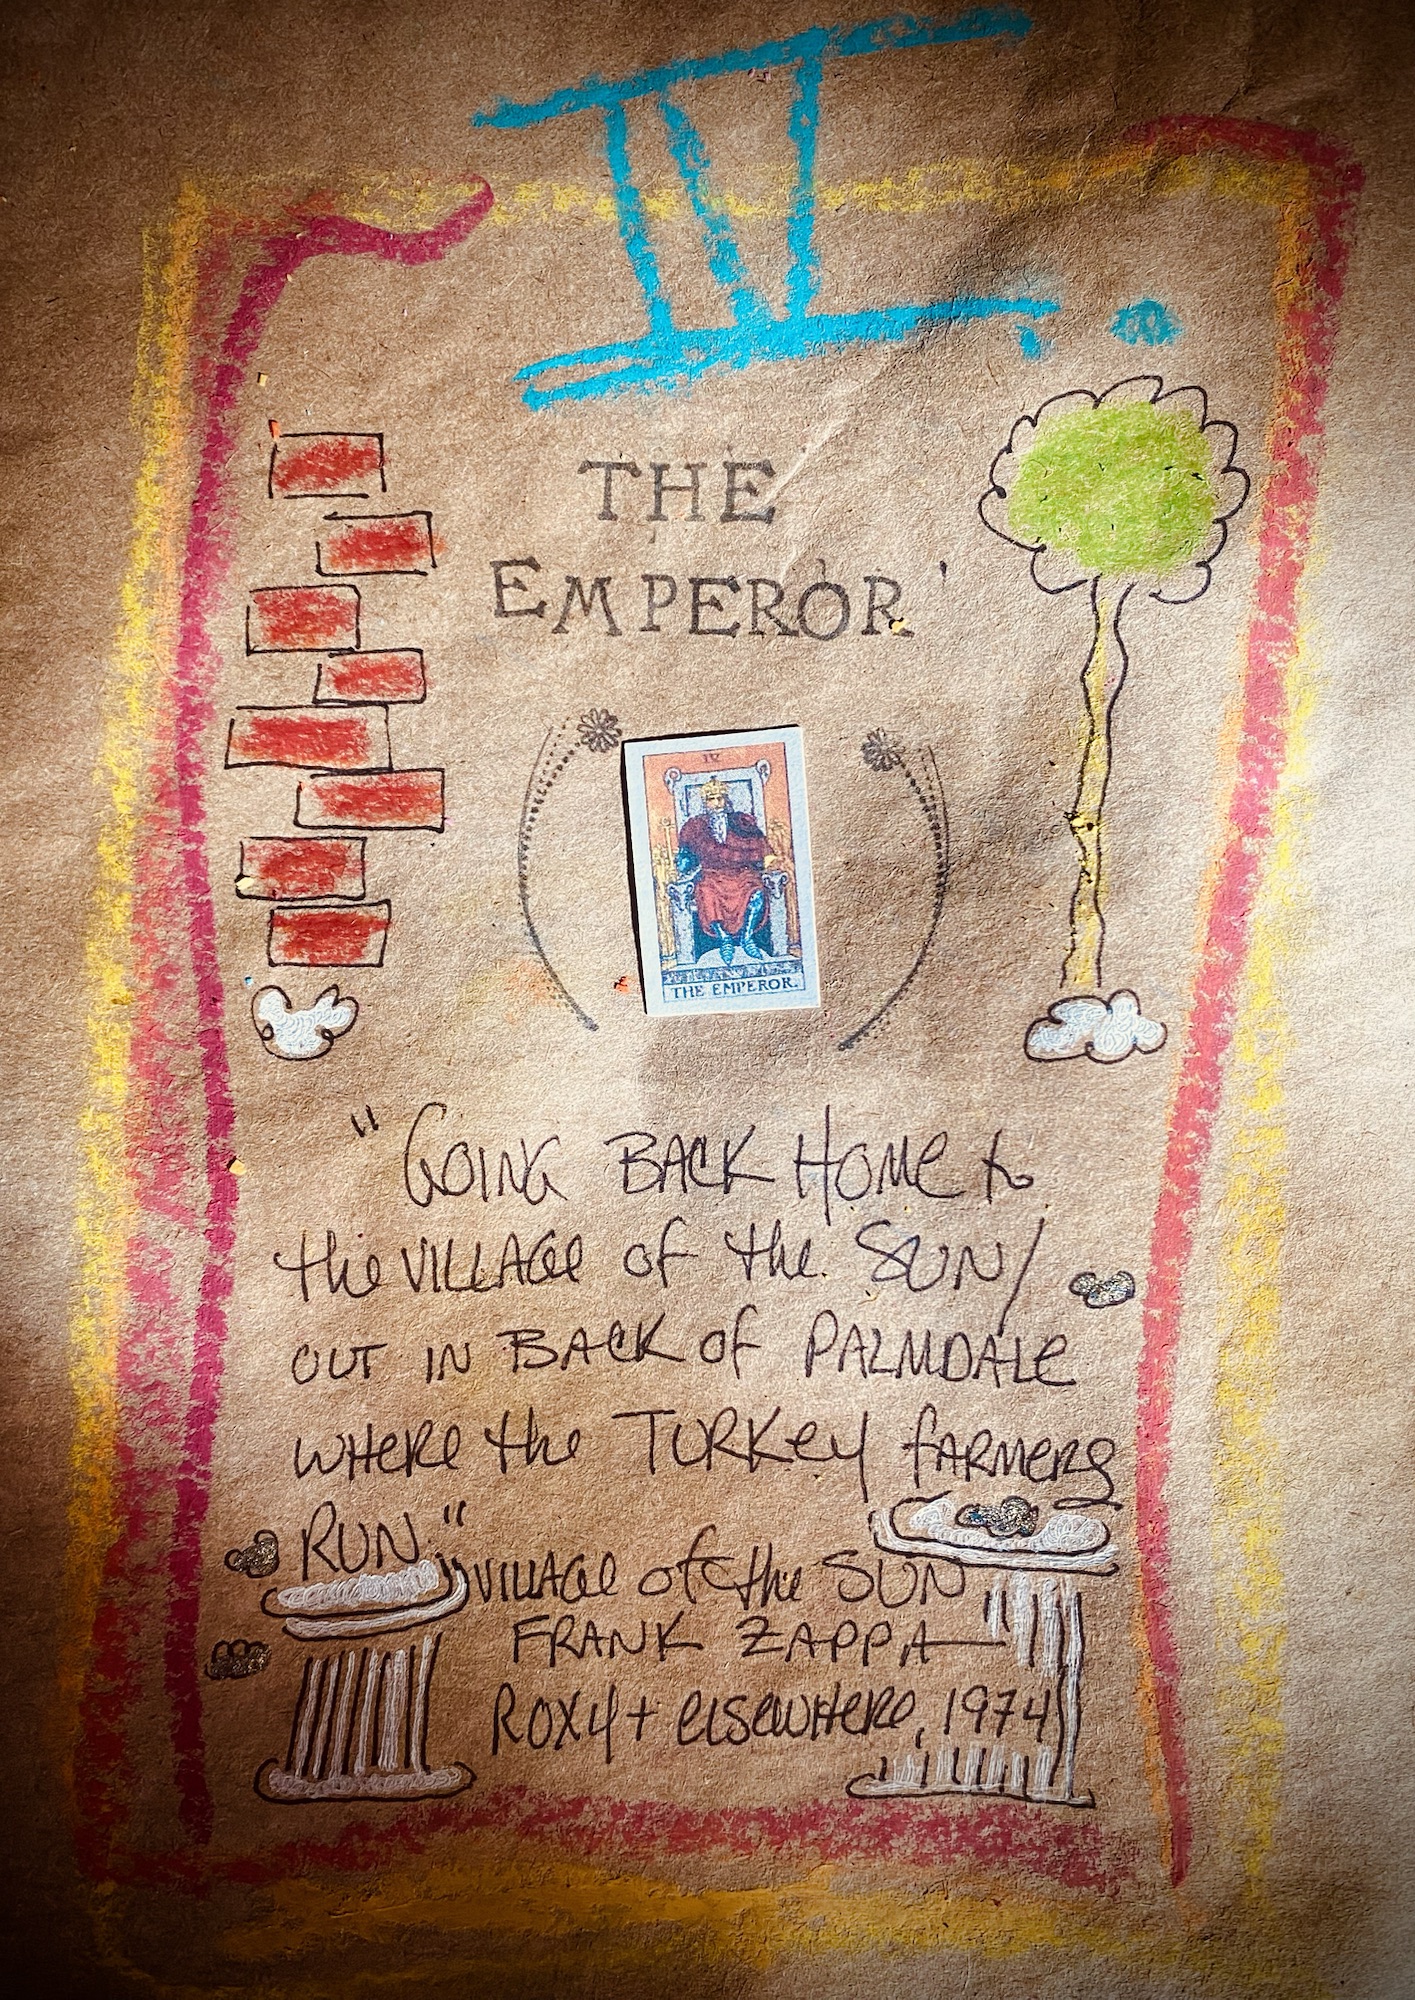 IV.
THE
EMPEROR
IV
THE EMPEROR.
"GOING BACK HOME to
the VILLAGE of the SUN/
OUT IN BACK of PALMDALE
WHERE the TURKEY fARMERS
RUN."
"VILLAGE of the SUN"
FRANK ZAPPA—
ROXY + elseWHeRe, 1974